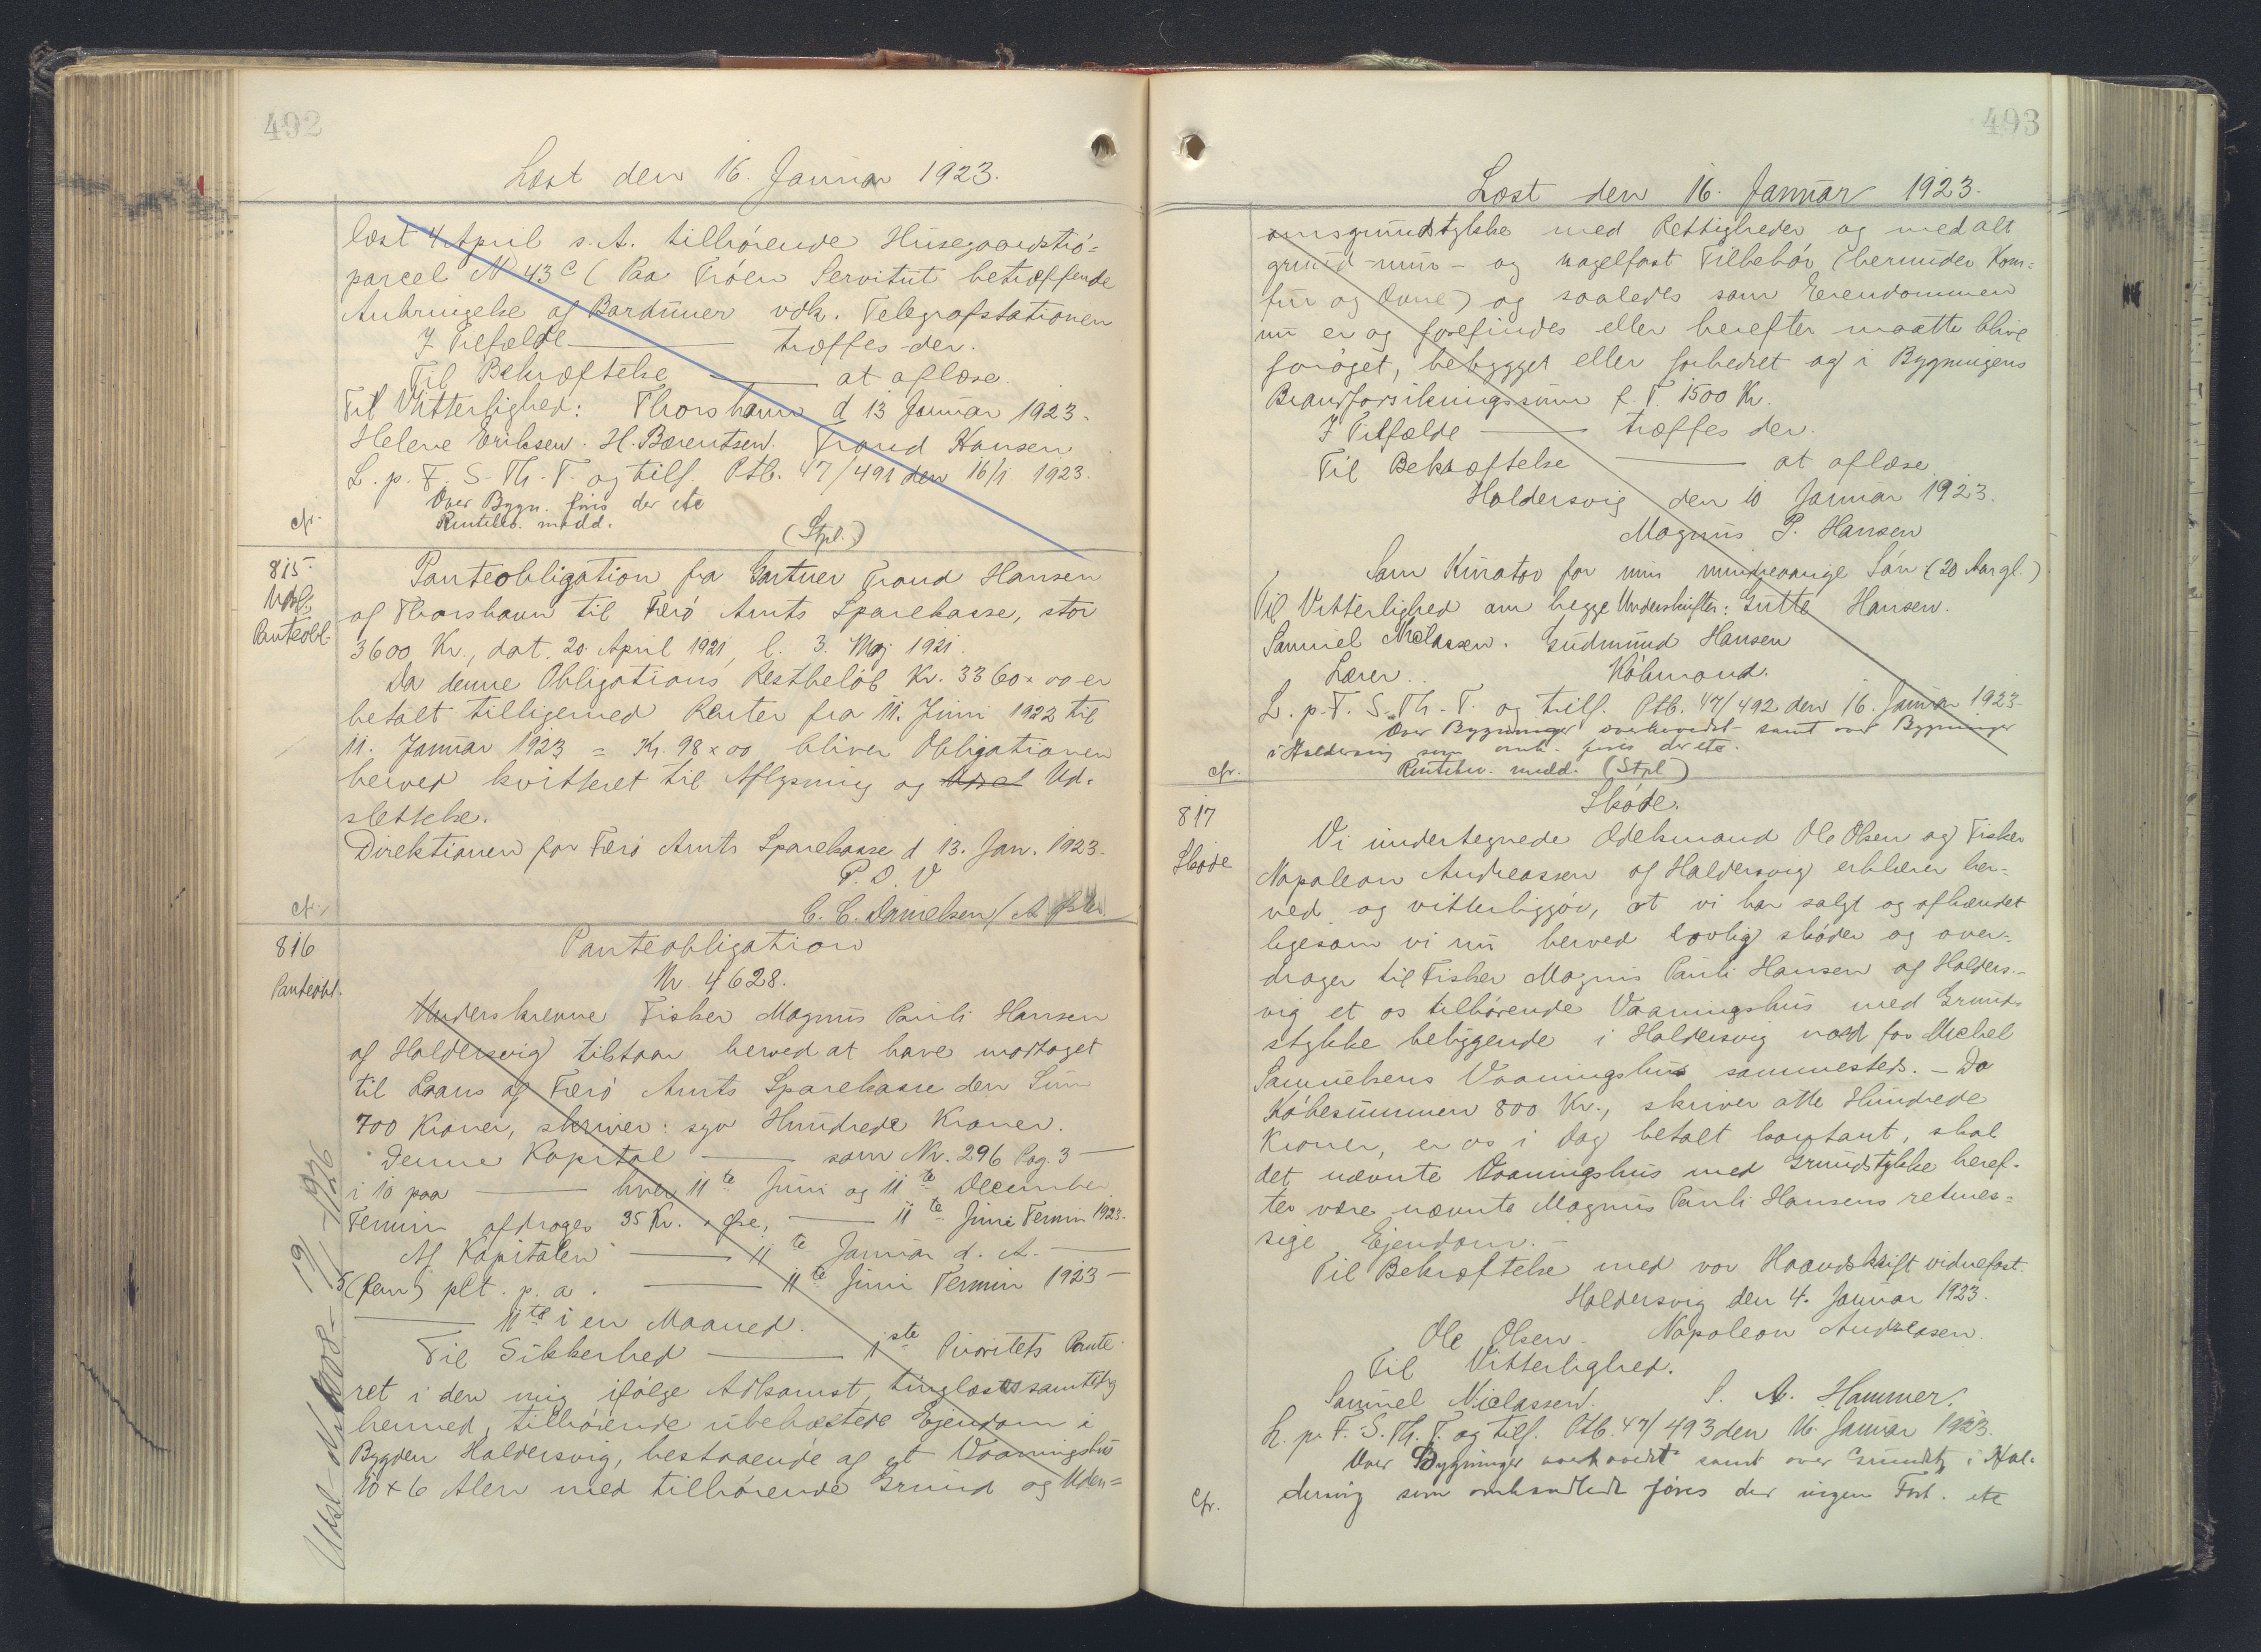 492
Læst den 16. Januar 1923.
læst 4 April s. A. tilhørende Husegaardstrø-
parcel N 43 c (Paa Trøen Servitut betræffende
Anbringelse af Barduner vdk. Telegrafstationen
I Tilfælde — træffes der.
Til Bekræftelse — at aflæse.
Til Vitterlighed: Thorshavn d 13 Januar 1923.
Helene Eriksen. H. Bærentsen. Trond Hansen
L. p. F. S. Th. T. og tilf. Ptb. 47/491 den 16/1 1923.
Over Bygn. føris der etc
Rentebev. medd.
cfr. (Stpl.)
815
Udsl.
Panteobl.
Panteobligation fra Gartner Trond Hansen
af Thorshavn til Færø Amts Sparekasse, stor
3600 Kr., dat. 20. April 1921, l. 3. Maj 1921.
Da denne Obligations Restbeløb Kr. 3360 x 00 er
betalt tilligemed Renter fra 11. Juni 1922 til
11. Januar 1923 = Kr. 98 x 00 bliver Obligationen
herved kvitteret til Aflysning og Ud-
slettelse.
Direktionen for Færø Amts Sparekasse d 13. Jan. 1923.
P. D. V
cfr. C. C. Danielsen /
816
Panteobl.
Panteobligation
Nr. 4628.
Underskrevne Fisker Magnus Pauli Hansen
af Haldersvig tilstaar herved at have modtaget
til Laans af Færø Amts Sparekasse den Sum
700 Kroner, skriver: syv Hundrede Kroner.
Denne Kapital — som Nr. 296 Pag. 3 —
i 10 paa — hver 11te Juni og 11te December
Termin afdrages 35 Kr. " Øre, — 11te Juni Termin 1923.
Af Kapitalen — 11te Januar d. A. —
5 (fem) pCt. p. a. — 11te Juni Termin 1923 —
— 11te i en Maaned.
Til Sikkerhed — 1ste Prioritets Pante-
ret i den mig ifølge Adkomst, tinglæst samtidig
hermed, tilhørende ubehæftede Ejendom i
Bygden Haldersvig, bestaaende af et Vaaningshus
10 x 6 Alen med tilhørende Grund og Uden-
Udsl. 19/11 - 1936
493
Læst den 16. Januar 1923.
omsgrundstykke med Rettigheder og med alt
grund - mur - og nagelfast Tilbehør (herunder Kom-
fur og Ovne) og saaledes som Eiendommen
nu er og forefindes eller herefter maatte blive
forøget, bebygget eller forbedret og i Bygningens
Brandforsikringssum f. T. 1500 Kr.
I Tilfælde — træffes der.
Til Bekræftelse — at aflæse.
Haldersvig den 10 Januar 1923.
Magnus P. Hansen
Som Kurator for min mindreaarige Søn (20 Aar gl.)
Til Vitterlighed om begge Underskrifter: Gutte Hansen.
Samuel Niclassen. Gudmund Hansen
Lærer. Købmand.
L. p. F. S. Th. T. og tilf. Ptb. 47/492 den 16. Januar 1923
Over Bygninger overhovedet samt over Bygninger
i Haldersvig som omh. føres der etc.
cfr. Rentebev. medd. (Stpl)
817
Skøde
Skøde.
Vi undertegnede Odelsmand Ole Olsen og Fisker
Napoleon Andreassen af Haldersvig erklærer her-
ved og vitterliggør, at vi har solgt og afhændet
ligesom vi nu herved lovlig skøder og over-
drager til Fisker Magnus Pauli Hansen af Halders-
vig et os tilhørende Vaaningshus med Grund-
stykke beliggende i Haldersvig nord for Michel
Samuelsens Vaaningshus sammesteds. — Da
Købesummen 800 Kr., skriver otte Hundrede
Kroner, er os i Dag betalt kontant, skal
det nævnte Vaaningshus med Grundstykke heref-
ter være nævnte Magnus Pauli Hansens retmæs-
sige Ejendom. —
Til Bekræftelse med vor Haandskrift vidnefast.
Haldersvig den 4. Januar 1923.
Ole Olsen. Napoleon Andreasen.
Til Vitterlighed.
Samuel Niclassen. S. A. Hammer.
L. p. F. S. Th. T. og tilf. Ptb. 47/493 den 16. Januar 1923.
Over Bygninger overhovedet samt over Grundst. i Hal-
cfr. dersvig som omhandlede føres der ingen Fort. etc